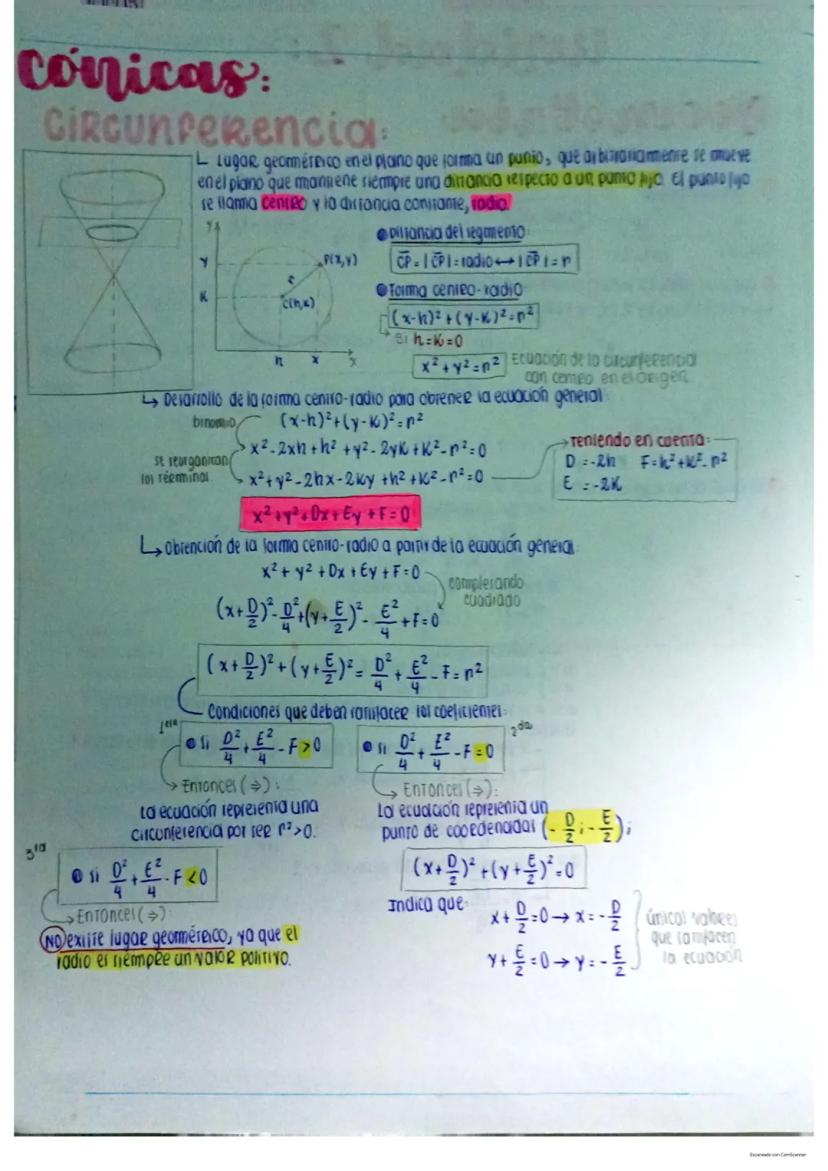 Cónicas:
CIRCUNFERENCIA:
↳ Lugar geométrico en el plano que forma un punto, que arbitrariamente se mueve
en el plano que mantiene siempre una distancia respecto a un punto fijo. El punto fijo
se llama centro y la distancia constante, radio.
Y
Y
K
P(x,y)
r
C(h,K)
h x x
● Distancia del segmento:
CP = |CP| = radio ↔ |CP| = r
● Forma centro-radio
(x-h)² + (y-K)² = r²
Si h=K=0
x² + y² = r²
Ecuación de la circunferencia
con centro en el origen
↳ Desarrollo de la forma centro-radio para obtener la ecuación general:
binomio
(x-h)² + (y-K)² = r²
x² - 2xh + h² + y² - 2yK + K² - r² = 0
se reorganizan
los términos
x² + y² - 2hx - 2Ky + h² + K² - r² = 0
Teniendo en cuenta:
D = -2h F = h² + K² - r²
E = -2K
x² + y² + Dx + Ey + F = 0
↳ Obtención de la forma centro-radio a partir de la ecuación general:
x² + y² + Dx + Ey + F = 0
completando
cuadrado
(x + D/2)² - D²/4 + (y + E/2)² - E²/4 + F = 0
(x + D/2)² + (y + E/2)² = D²/4 + E²/4 - F = r²
Condiciones que deben satisfacer los coeficientes:
1era
● Si D²/4 + E²/4 - F > 0
→ Entonces (⇒):
La ecuación representa una
circunferencia por ser r² > 0.
2da
● Si D²/4 + E²/4 - F = 0
→ Entonces (⇒):
La ecuación representa un
punto de coordenadas (-D/2 ; -E/2);
(x + D/2)² + (y + E/2)² = 0
Indica que:
x + D/2 = 0 → x = -D/2
y + E/2 = 0 → y = -E/2
únicos valores
que satisfacen
la ecuación
3ra
● Si D²/4 + E²/4 - F < 0
→ Entonces (⇒):
NO existe lugar geométrico, ya que el
radio es siempre un valor positivo.
Escaneado con CamScanner